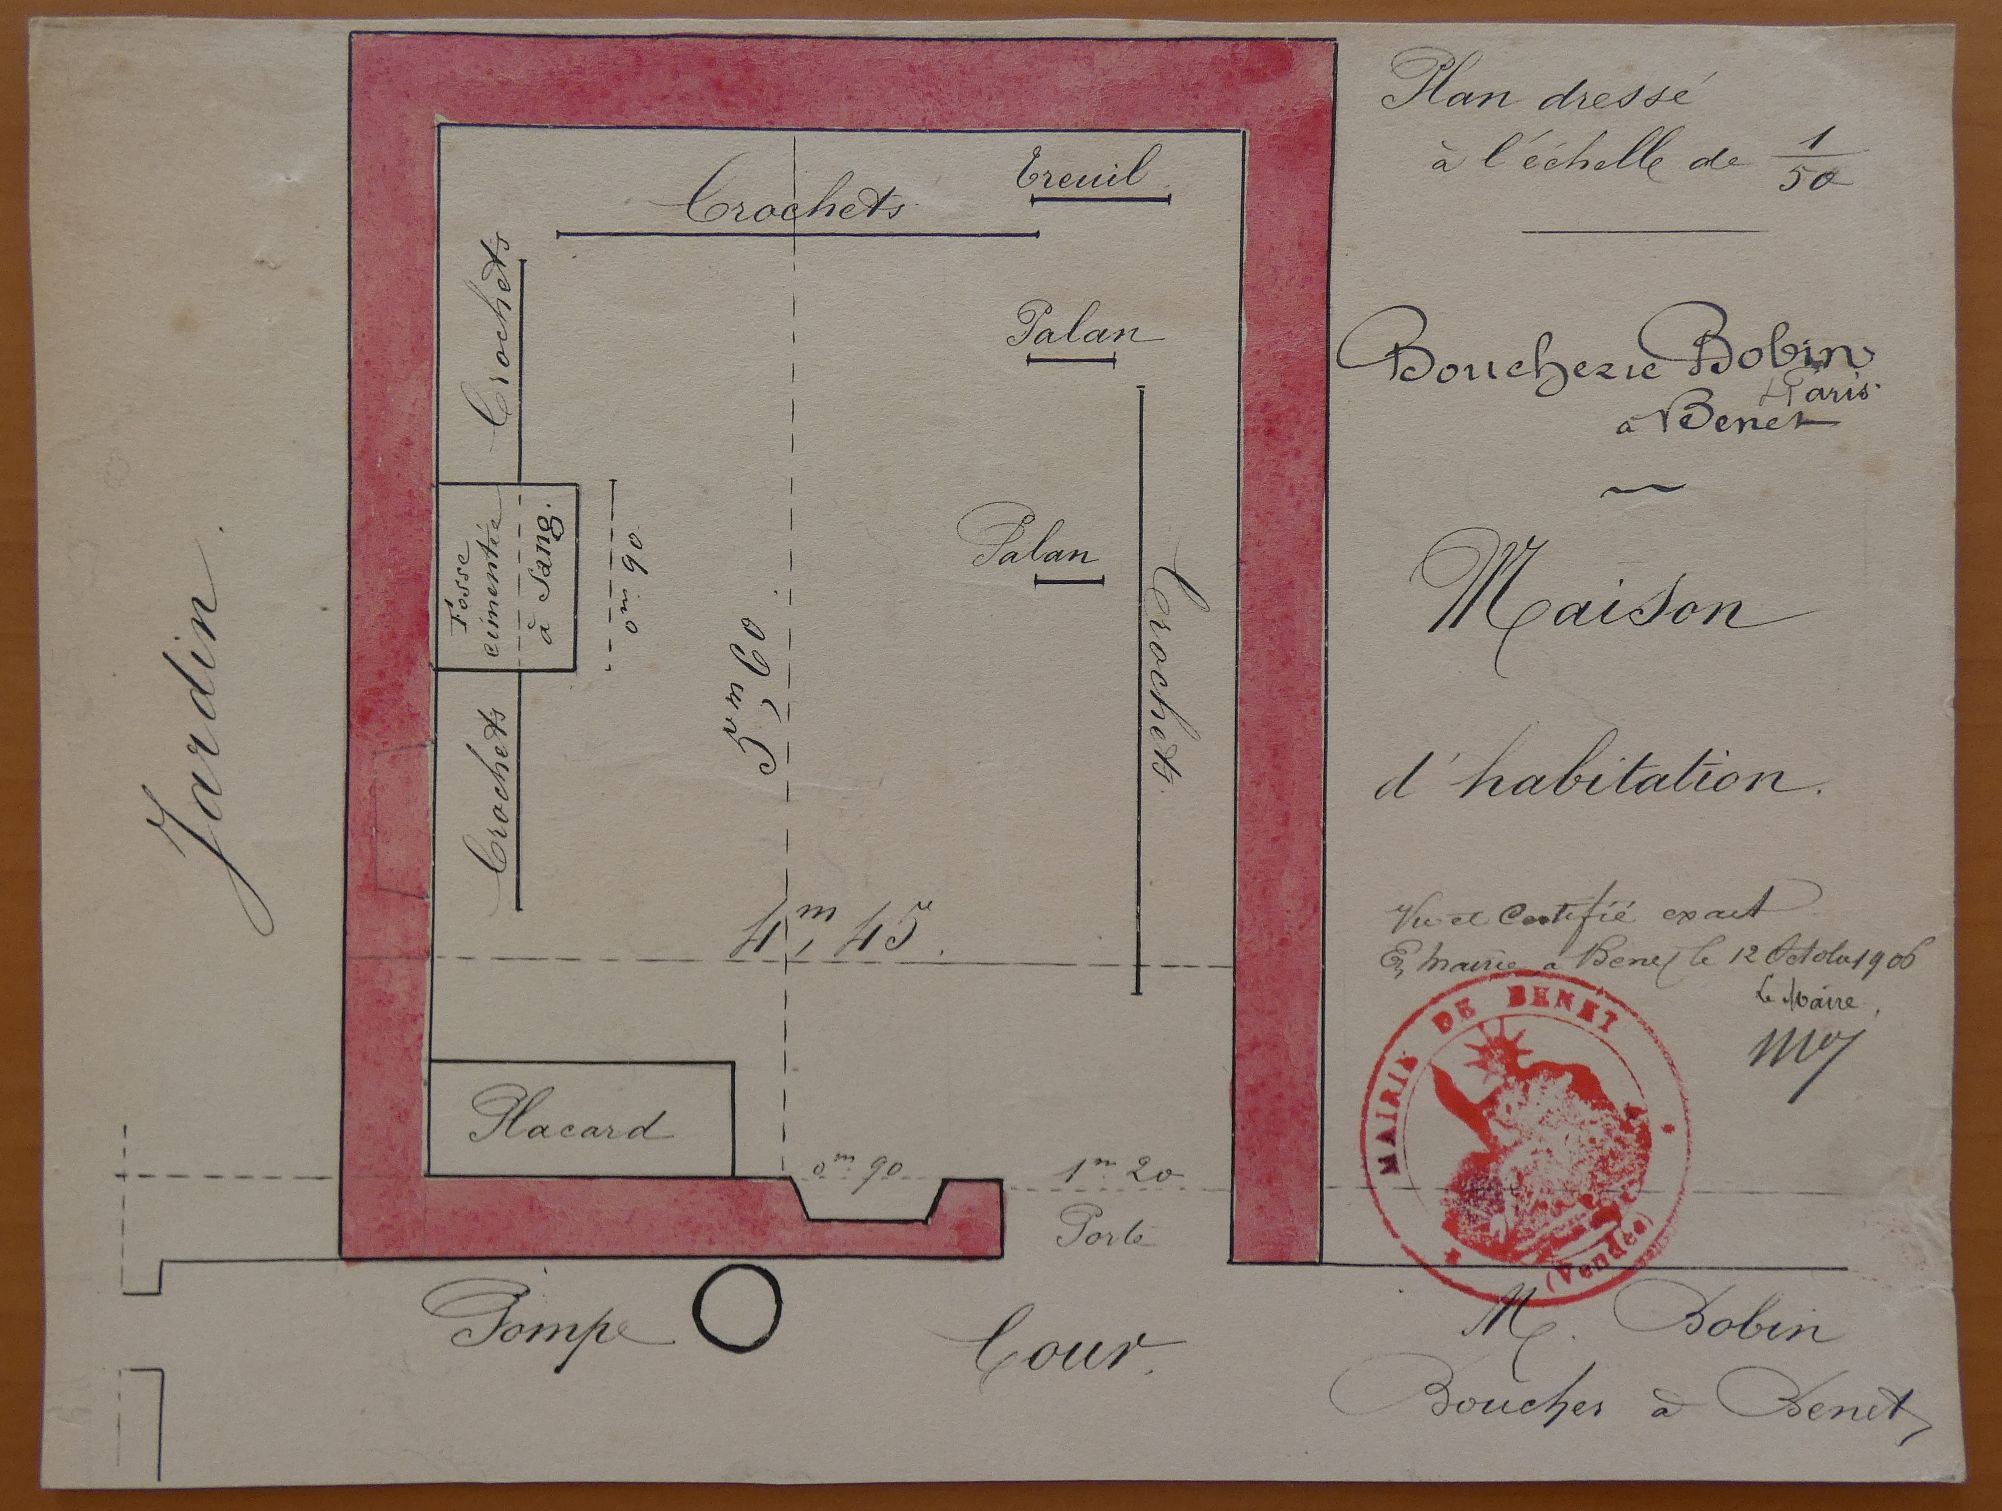 Plan dressé
à l'échelle de 1/50
Boucherie Bobin
Paris
à Benet
Maison
d'habitation.
Vu et Certifié exact
En mairie à Benet le 12 Octobre 1906
Le Maire,
MAIRIE DE BENET
(Vendée)
M. Bobin
Boucher à Benet
Treuil
Crochets
Crochets
Palan
Palan
Crochets
Fosse
cimentée
à Sang.
0m 90
5m,60
Crochets
4m,45.
Placard
0m 90
1m 20
Porte
Pompe
Cour.
Jardin.